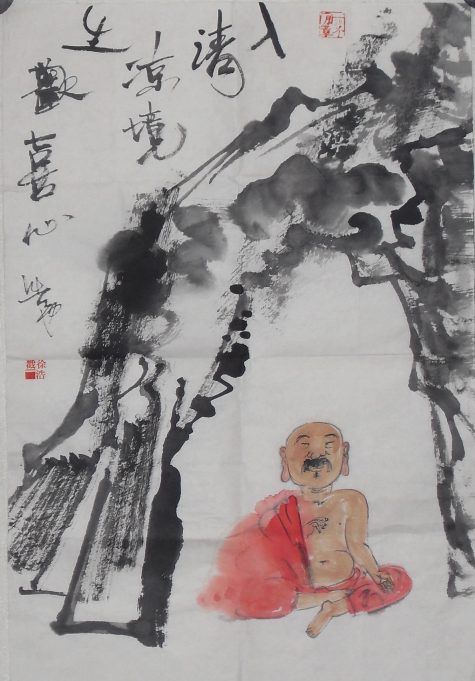 入
清
凉境
生
歡喜心
徐浩